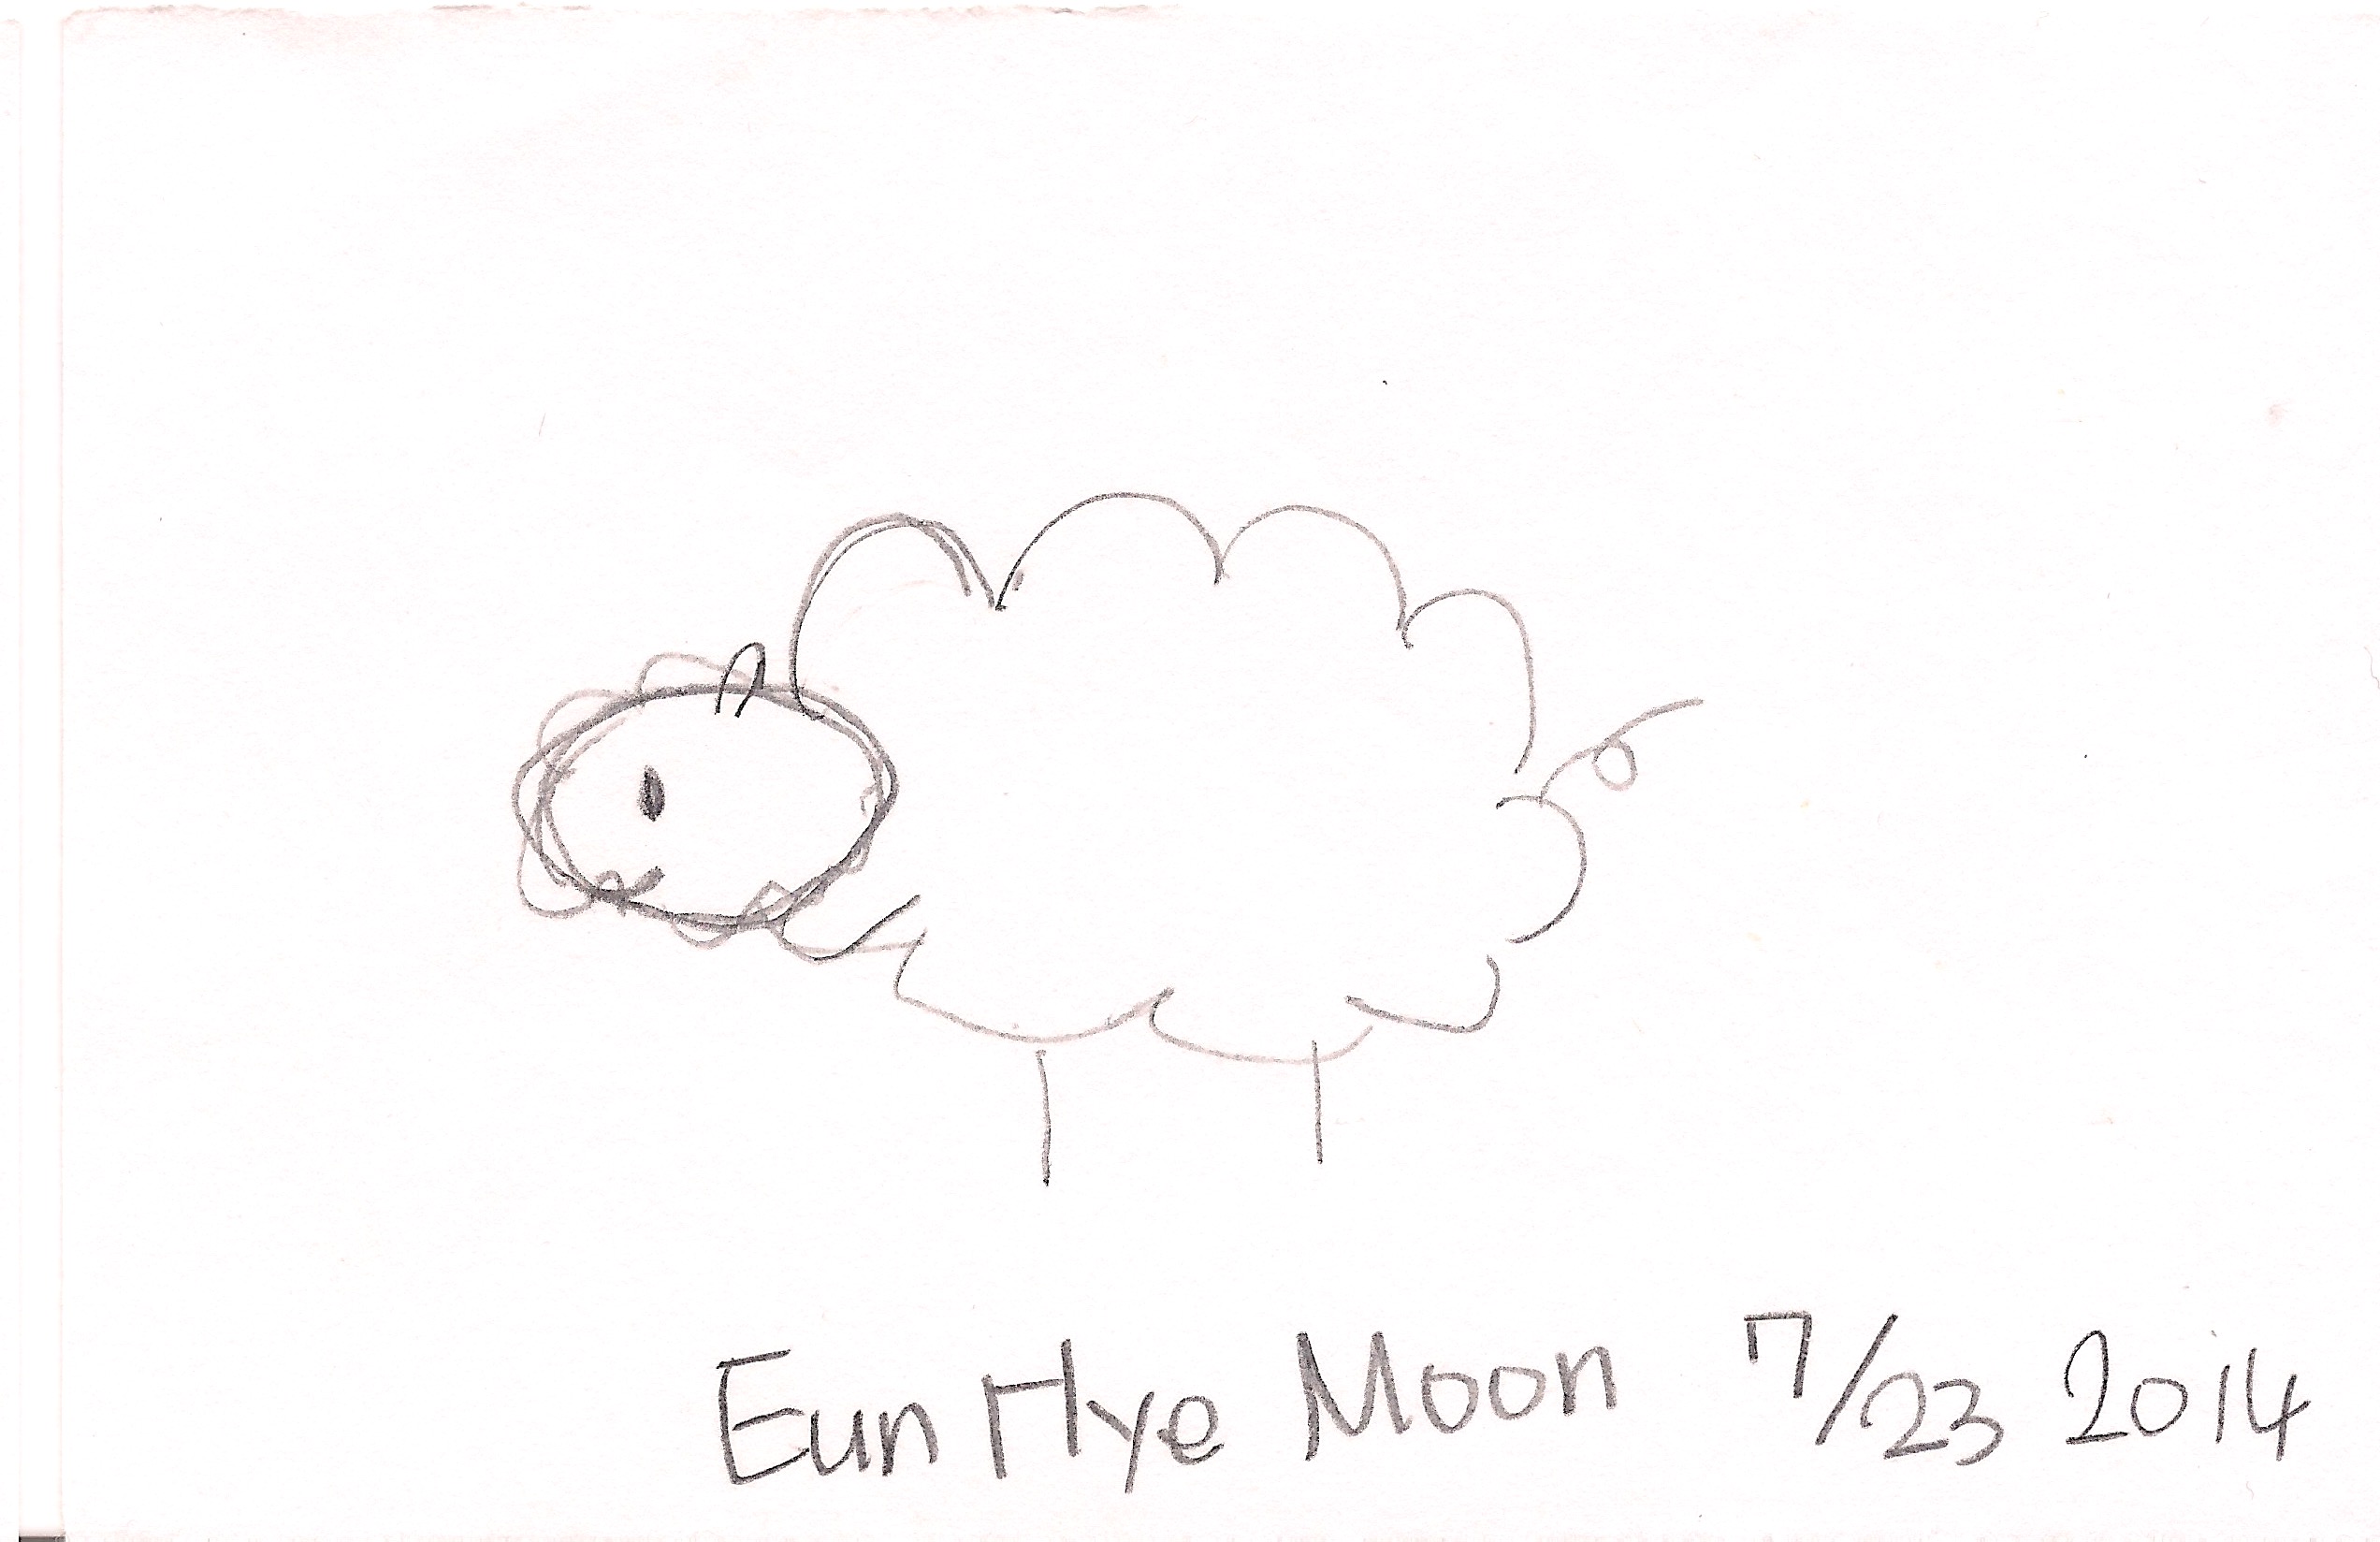 Eun Hye Moon 7/23 2014